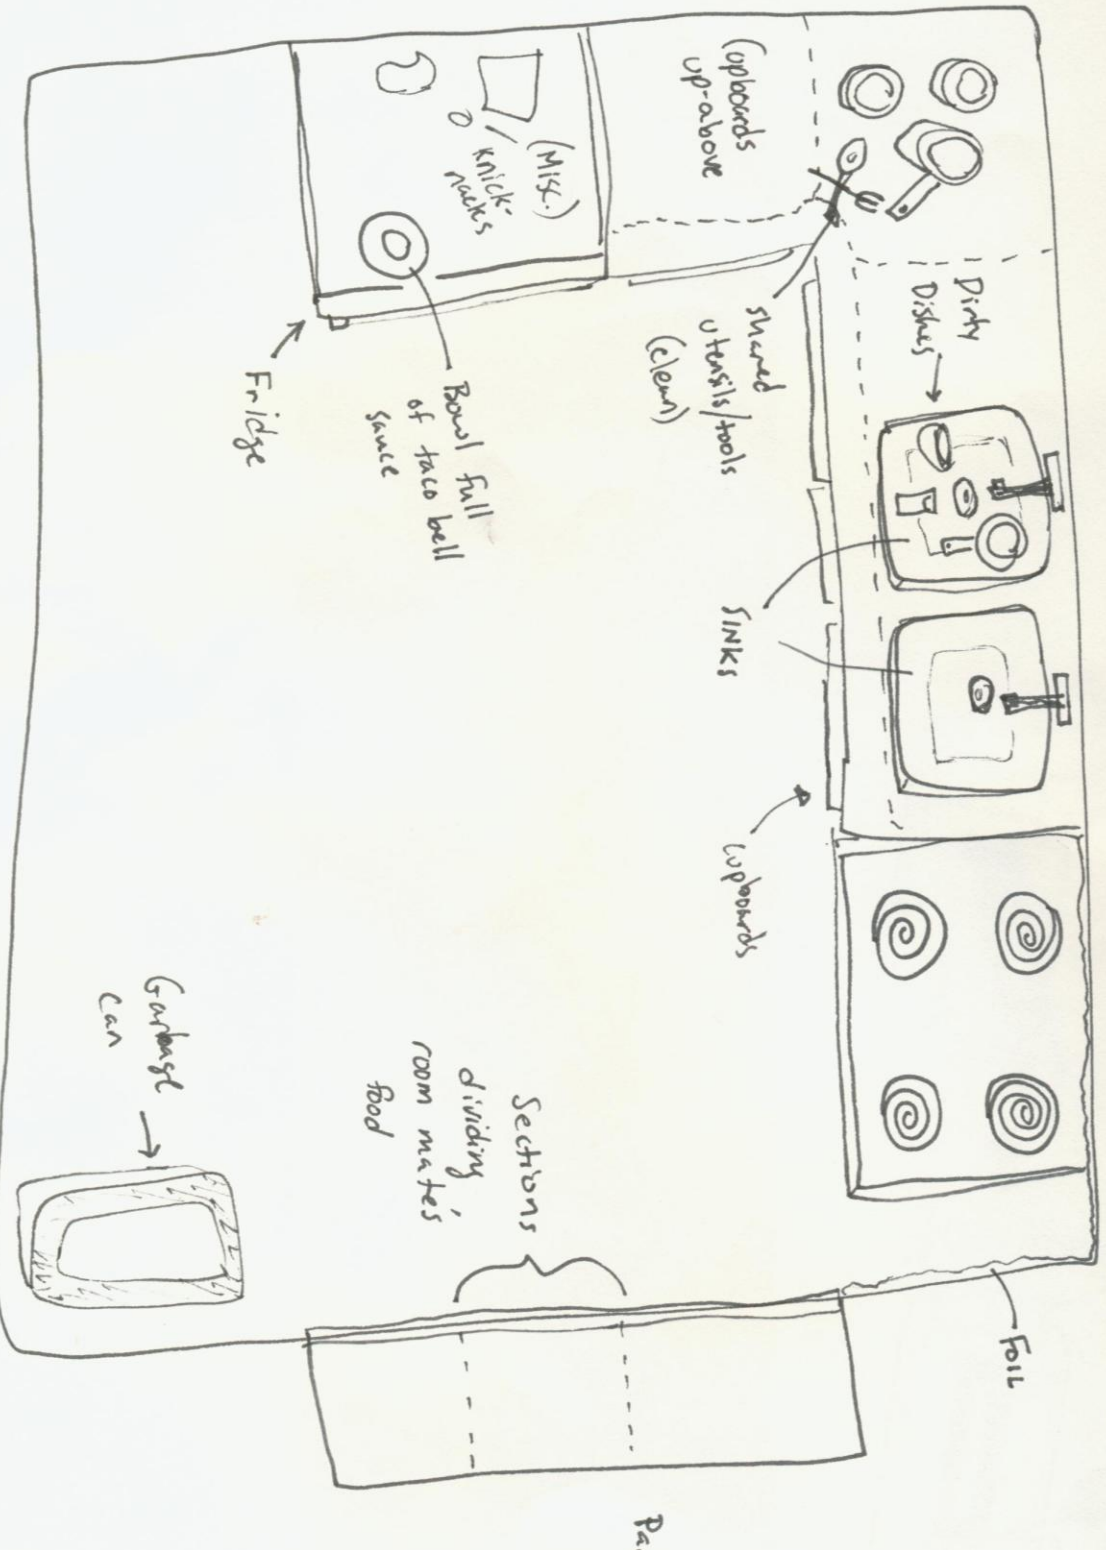 Cupboards
up-above
(Misc.)
knick-
nacks
Dirty
Dishes
shared
utensils/tools
(clean)
Bowl full
of taco bell
sauce
Fridge
SINKS
cupboards
FOIL
Sections
dividing
room mate's
food
Garbage
can
Pa